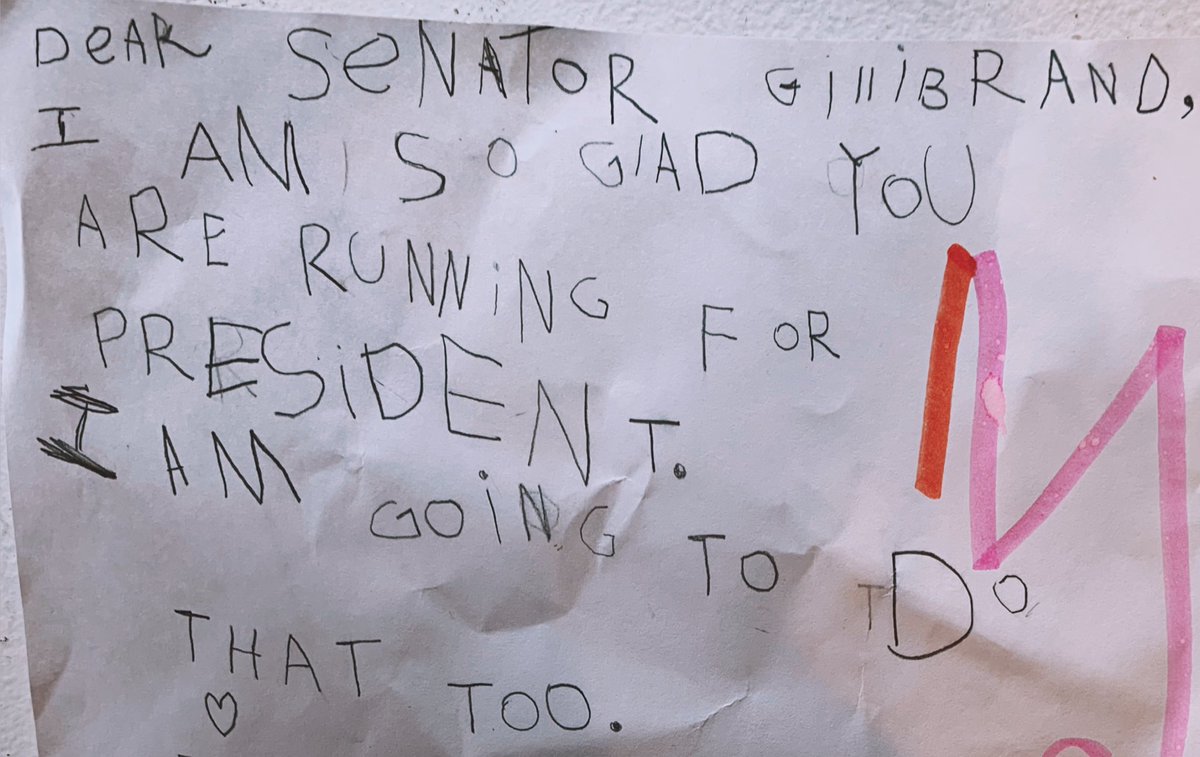 DeAR SeNATOR GillibRAND,
I AM SO GlAD YOU
ARE RUNNiNG FOR
PRESiDENT.
I AM GOiNG TO DO
THAT TOO.